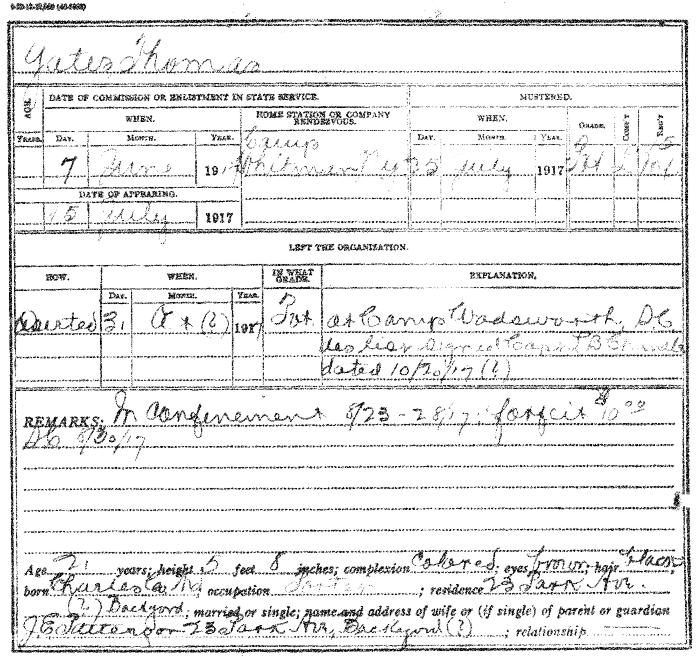 Yates Thomas
AGE.
DATE OF COMMISSION OR ENLISTMENT IN STATE SERVICE.
MUSTERED.
WHEN.
HOME STATION OR COMPANY RENDEZVOUS.
WHEN.
GRADE.
CO'S'Y
REG'T
YEARS.
DAY.
MONTH.
YEAR.
DAY.
MONTH.
YEAR.
7 June 191 Camp Whitman NY 25 July 1917 Pvt L 15
DATE OF APPEARING.
15 July 1917
LEFT THE ORGANIZATION.
HOW.
WHEN.
IN WHAT GRADE.
EXPLANATION.
DAY.
MONTH.
YEAR.
Deserted 31 (?) 1917 Pvt. at Camp Wadsworth, SC
signed Capt
dated 10/20/17 (?)
REMARKS: In Confinement 8/23-28/17; forfeit $10.00
SC 8/30/17
Age 21 years; height 5 feet 8 inches; complexion Colored; eyes brown; hair black;
born Charles occupation Porter; residence 23 Park Ave.
(?) married or single; name and address of wife or (if single) of parent or guardian
23 Park Av, (?); relationship